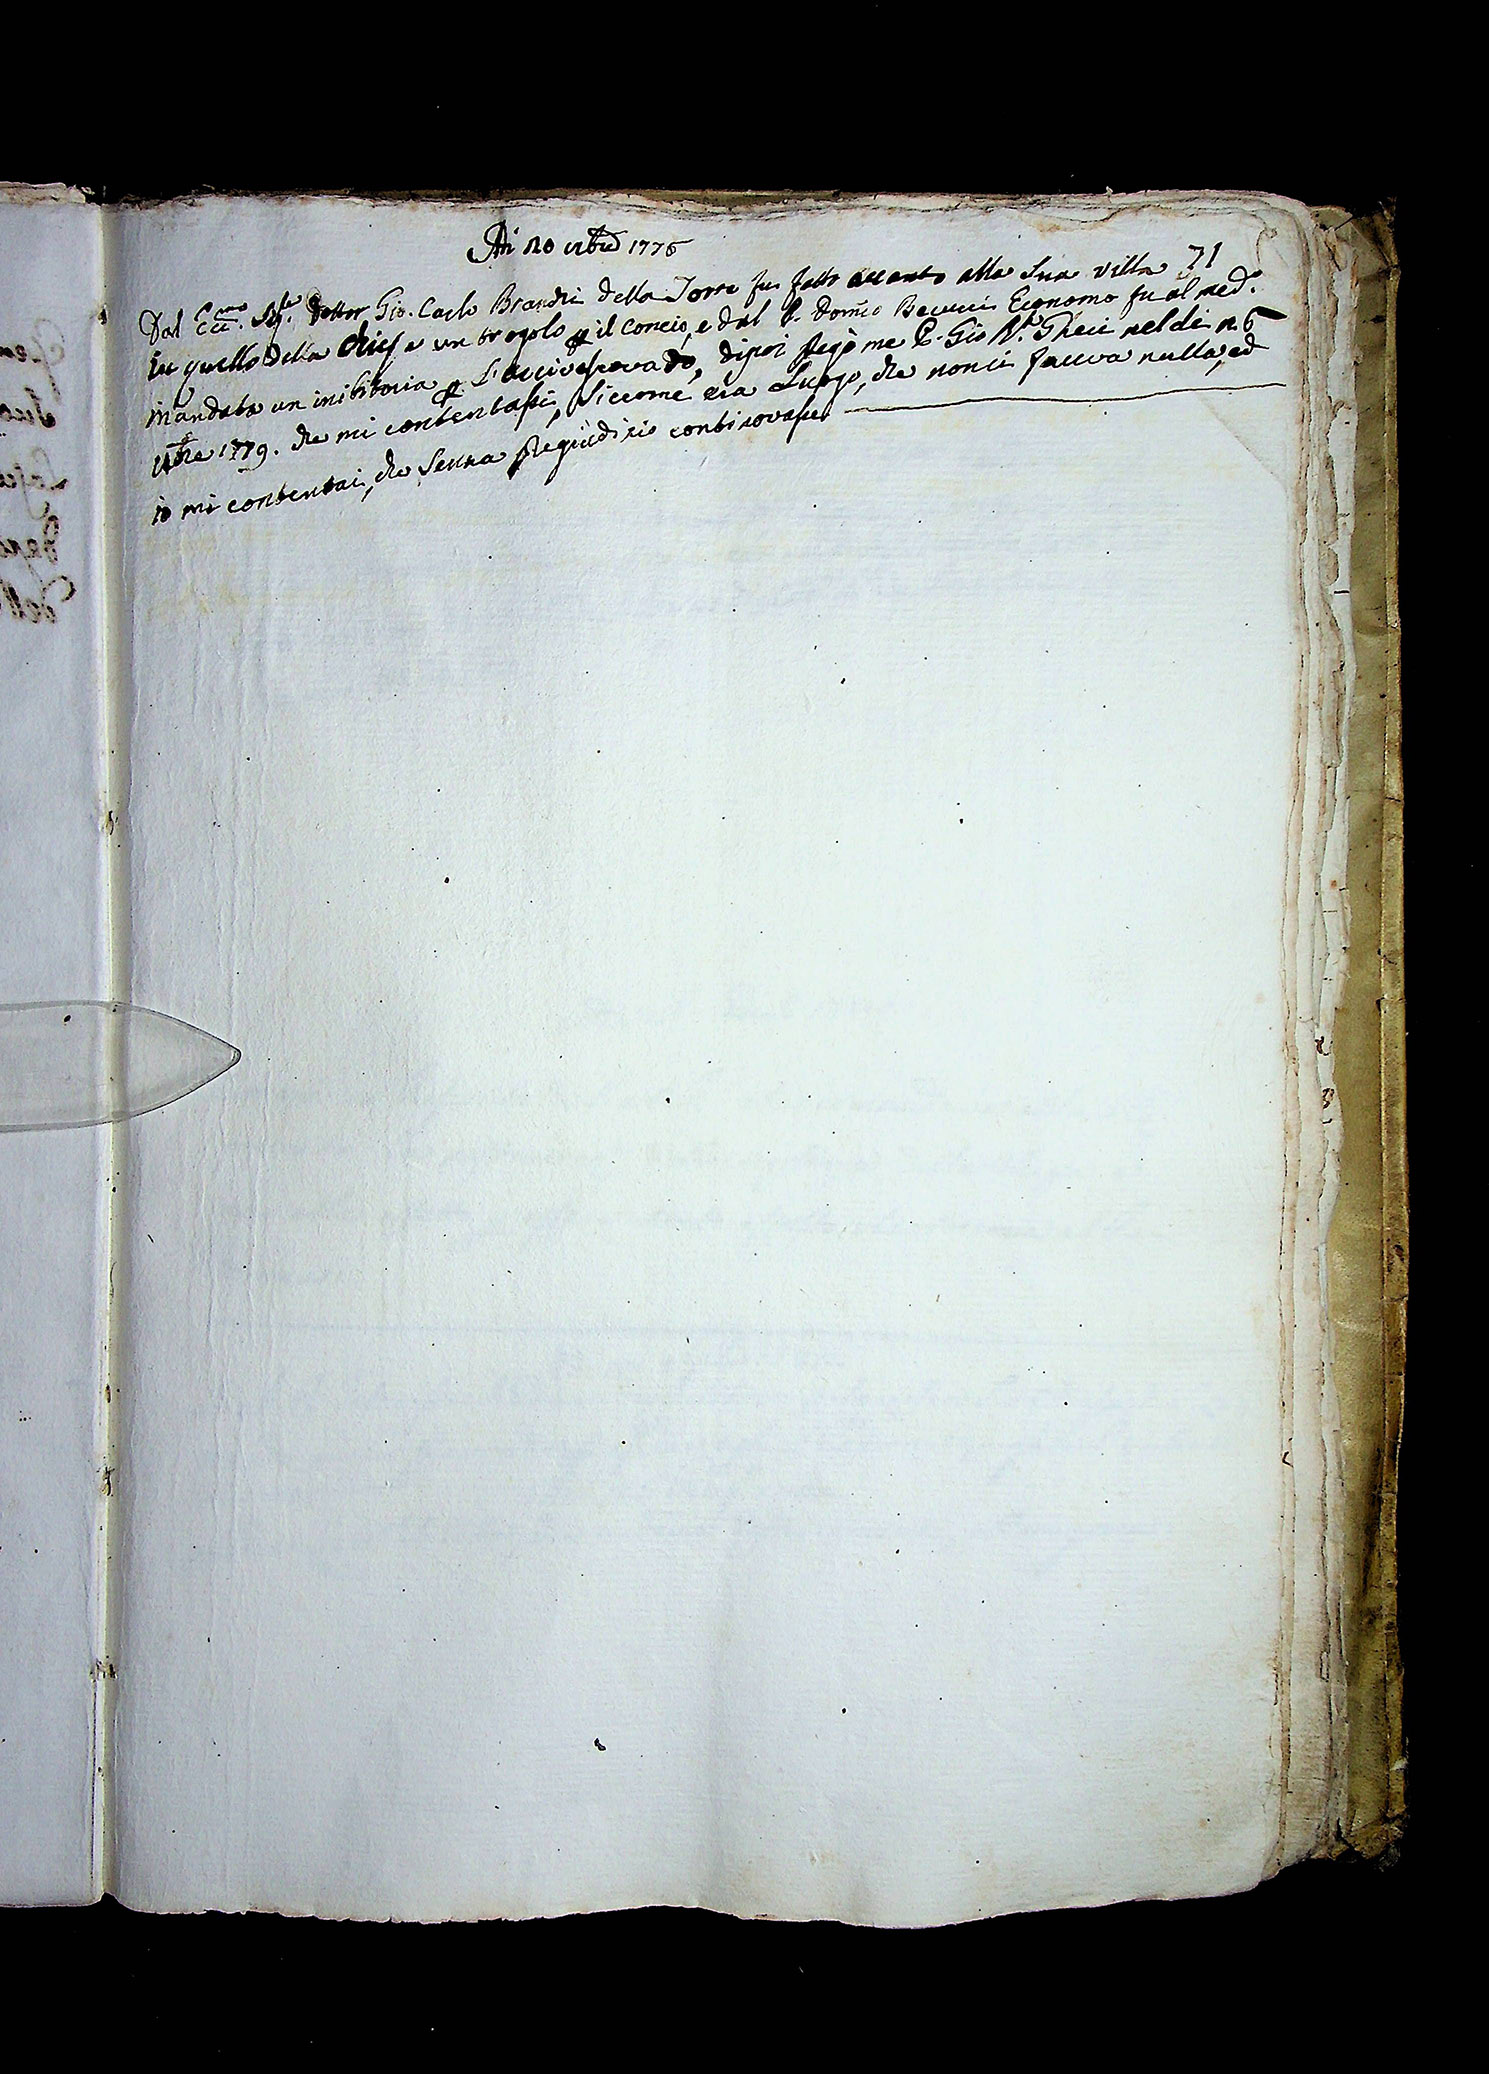 Adi 20 xbre 1776
71
Dal Ecc.mo Sig.re Dottor Gio. Carlo Brandi della Torre fu fatto accanto alla Sua villa
in quello della chiesa un trogolo per il concio, e dal P. Domco Becucci Economo fu al med.o
mandata un inibitoria per l'arcivescovado, dipoi pregò me P. Gio Bta. Gheri nel dì n. 6
xbre 1779. che mi contentassi, siccome era Luogo, che non ci faceva nulla, ed
io mi contentai, che senza pregiudizio continovasse